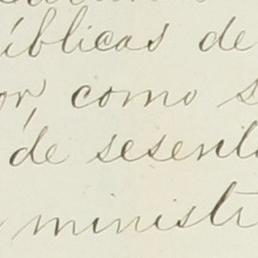 úblicas de
or, como s
de sesent
minist